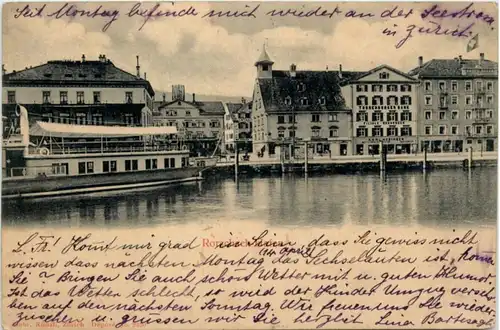 Seit Montag befinde mich wieder an der Seestrasse
in Zürich
Rorschach-Hafen
L. Fr! Kommt mir grad in Sinn, dass Sie gewiss nicht
wissen dass nächsten Montag das Sechseläuten ist, Komm
(14 April)
Sie? Bringen Sie auch schön Wetter mit u. guten Humor.
Ist das Wetter schlecht, so wird der Kinder Umzug versch
ben auf den nächsten Sonntag. Wir freuen uns Sie wieder
zu u. grüssen wir Sie herzlich Luna
Zürich